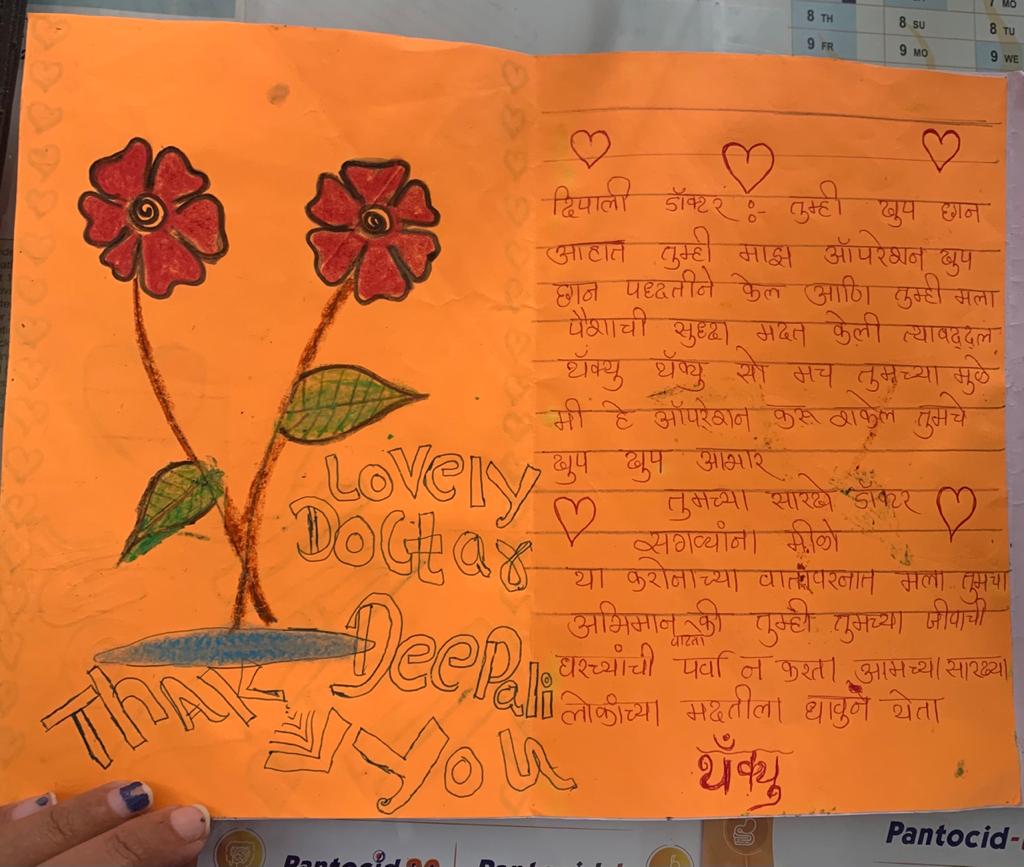 7 MO
8 TH
8 SU
8 TU
9 FR
9 MO
9 WE
Lovely
Doctar
Deepali
Thak
You
दिपाली डॉक्टर :- तुम्ही खुप छान
आहात तुम्ही माझ ऑपरेशन खुप
छान पध्दतीने केल आणि तुम्ही मला
पैशाची सुध्दा मदत केली त्याबद्दल
थॅंक्यु थॅंक्यु सो मच तुमच्या मुळे
मी हे ऑपरेशन करू शकेल तुमचे
खुप खुप आभार
तुमच्या सारखे डॉक्टर
सगळ्यांना मीळो
या करोनाच्या वातावरनात मला तुमचा
अभिमान वाटतो की तुम्ही तुमच्या जीवाची
घरच्यांची पर्वा न करता आमच्या सारख्या
लोकांच्या मदतीला धावुन येता
थॅंक्यु
Pantocid
Pantocid